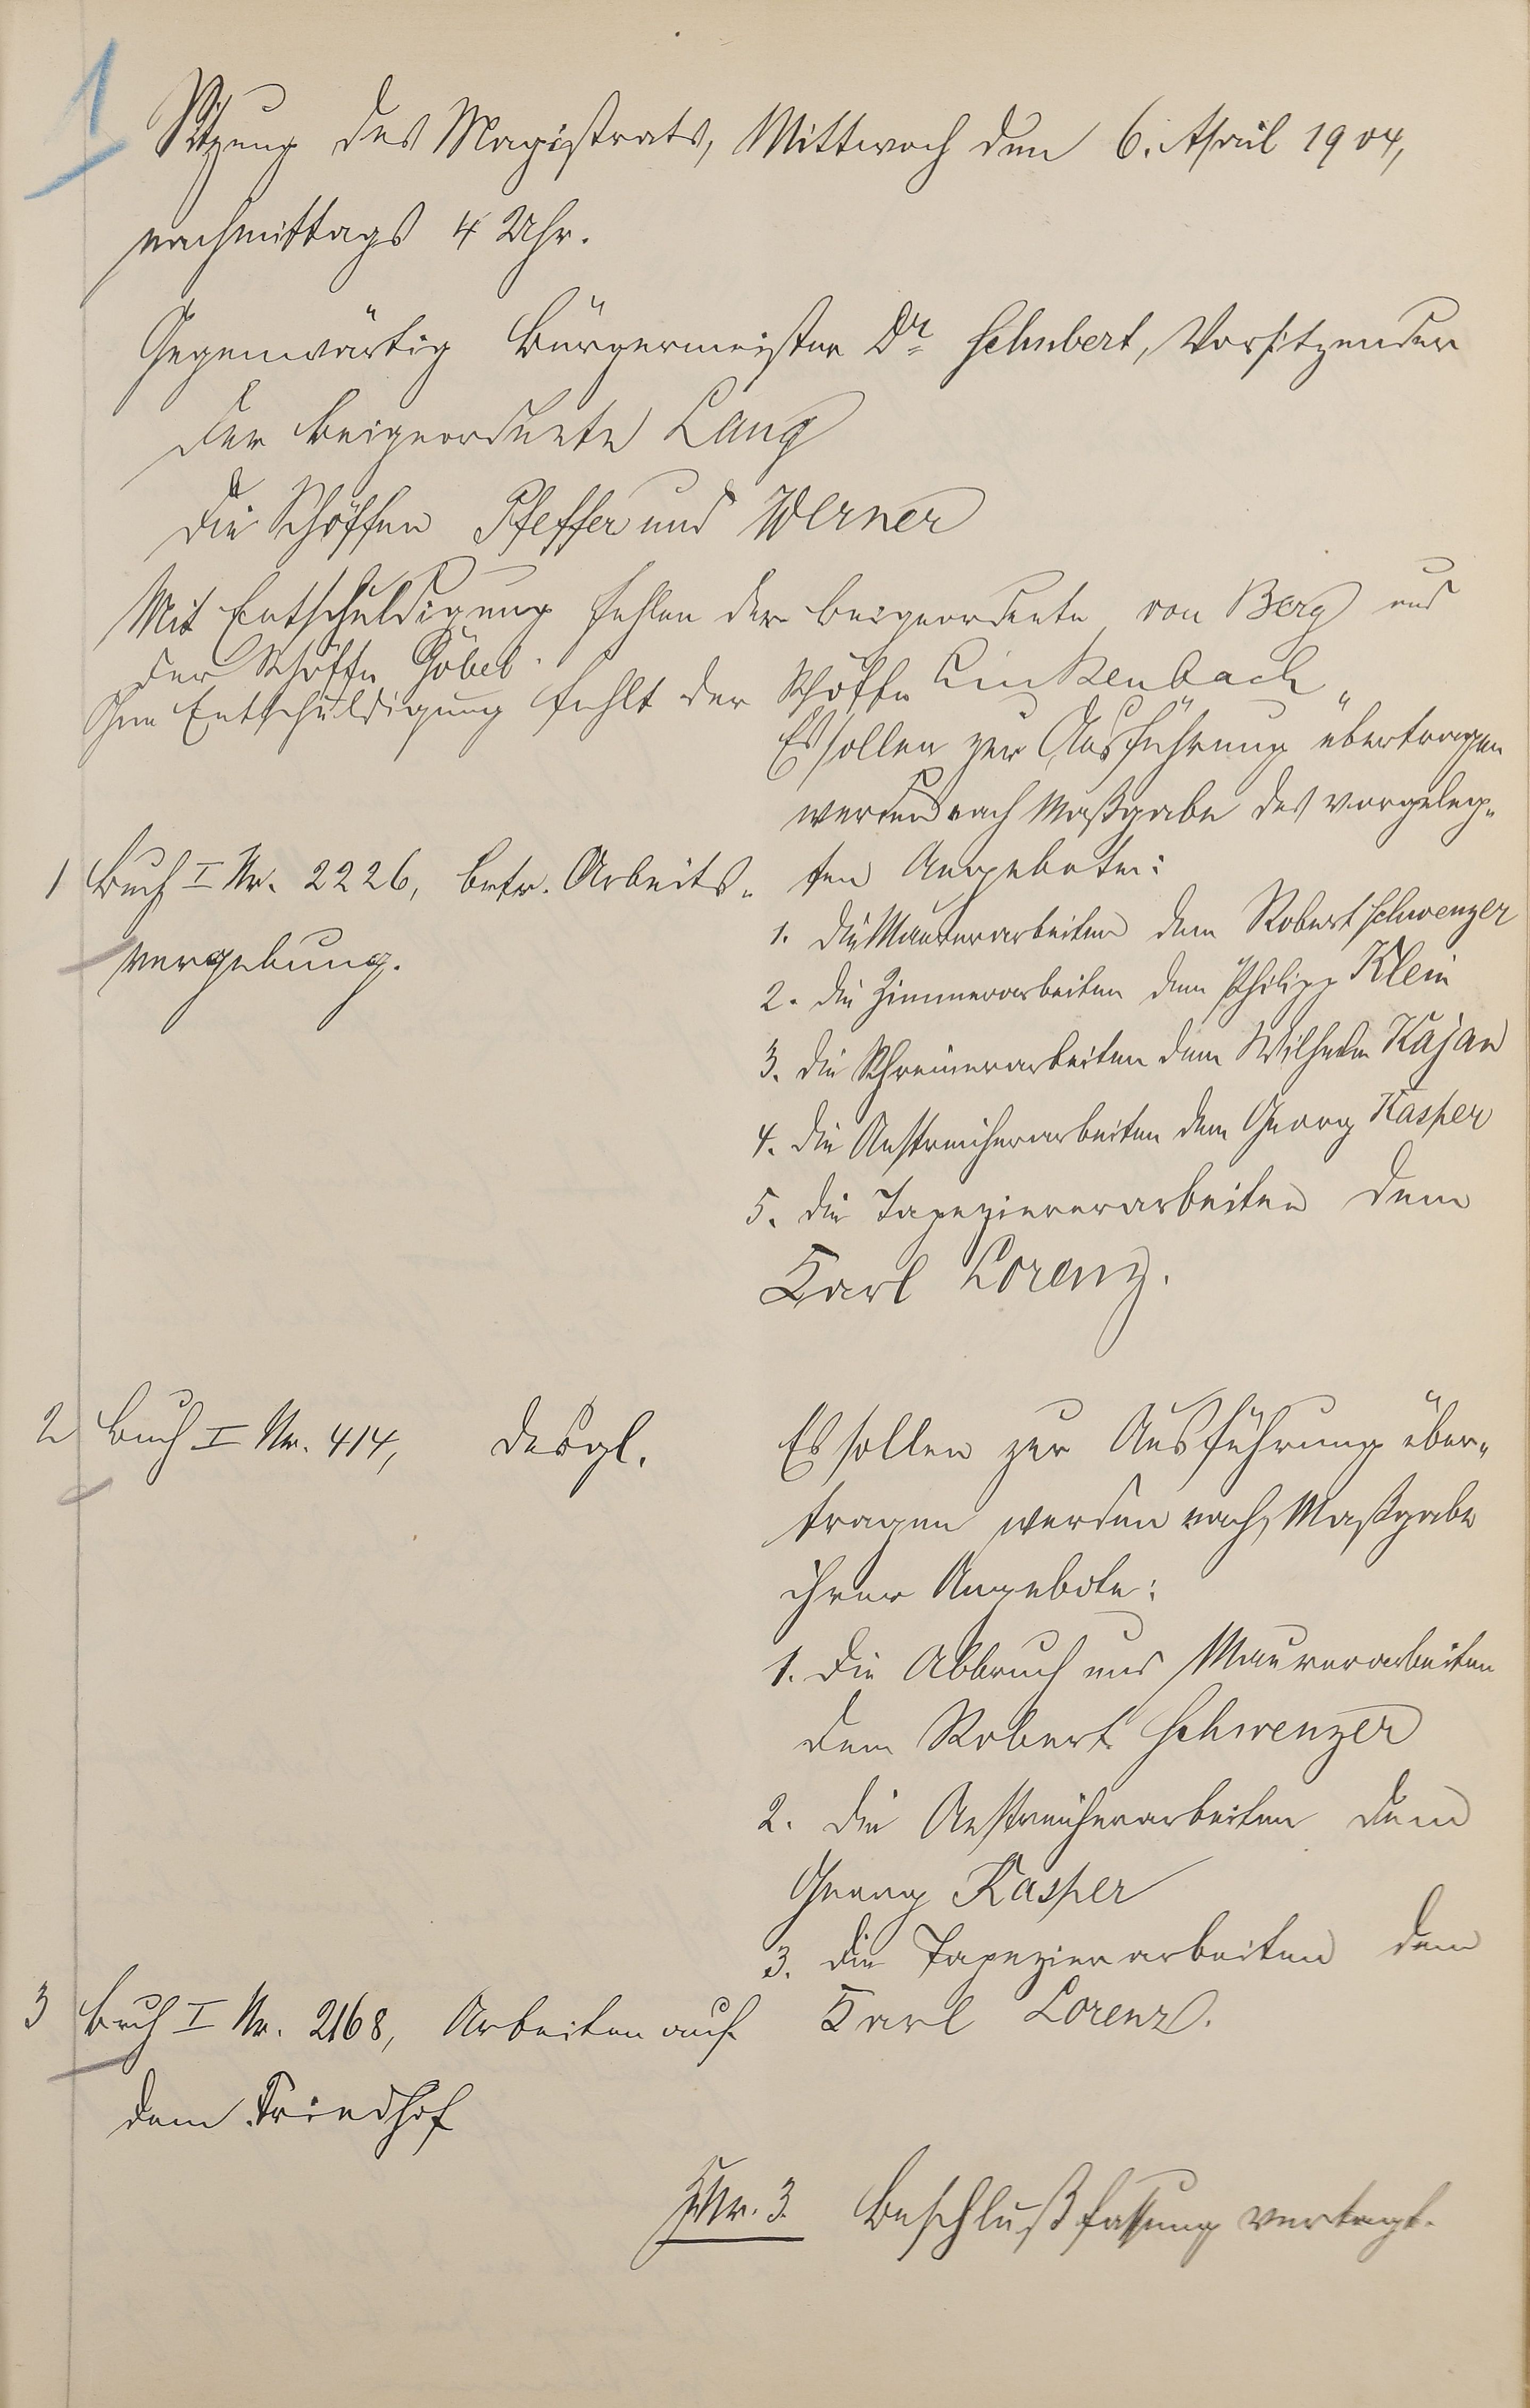 1
Sitzung des Magistrats, Mittwoch den 6. April 1904,
nachmittags 4 Uhr.
Gegenwärtig Bürgermeister Dr. Schubert, Vorsitzender
der Beigeordnete Lang
die Schöffen Pfeffer und Werner
Mit Entschuldigung fehlen der Beigeordnete von Berg und
der Schöffe Göbel.
Ohne Entschuldigung fehlt der Schöffe Linkenbach
1 Buch I Nr. 2226, betr. Arbeits-
vergebung.
Es sollen zur Ausführung übertragen
werden nach Maßgabe des vorgeleg-
ten Angebote:
1. die Maurerarbeiten dem Robert Schwenzer
2. die Zimmerarbeiten dem Philipp Klein
3. die Schreinerarbeiten dem Wilhelm Kajan
4. die Anstreicherarbeiten dem Georg Kasper
5. die Tapeziererarbeiten dem
Karl Lorenz.
2 Buch I Nr. 414, desgl.
Es sollen zur Ausführung über-
tragen werden nach Maßgabe
ihrer Angebote:
1. Die Abbruch und Maurerarbeiten
dem Robert Schwenzer
2. die Anstreicherarbeiten dem
Georg Kasper
3. die Tapezierarbeiten dem
Karl Lorenz.
3 Buch I Nr. 2168, Arbeiten auf
dem Friedhof
Zu Nr. 3. Beschlußfassung vertagt.